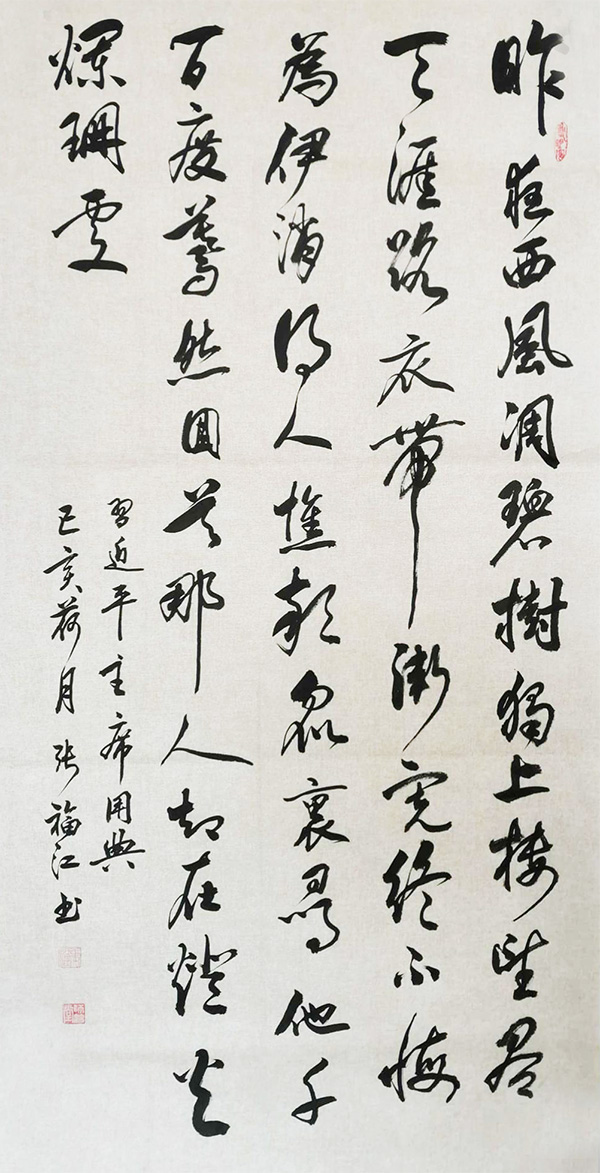 昨夜西風凋碧樹獨上樓望盡
天涯路衣帶漸寬終不悔
為伊消得人憔顇眾裏尋他千
百度驀然回首那人却在燈火
爛珊處
習近平主席用典
己亥荷月張福江書